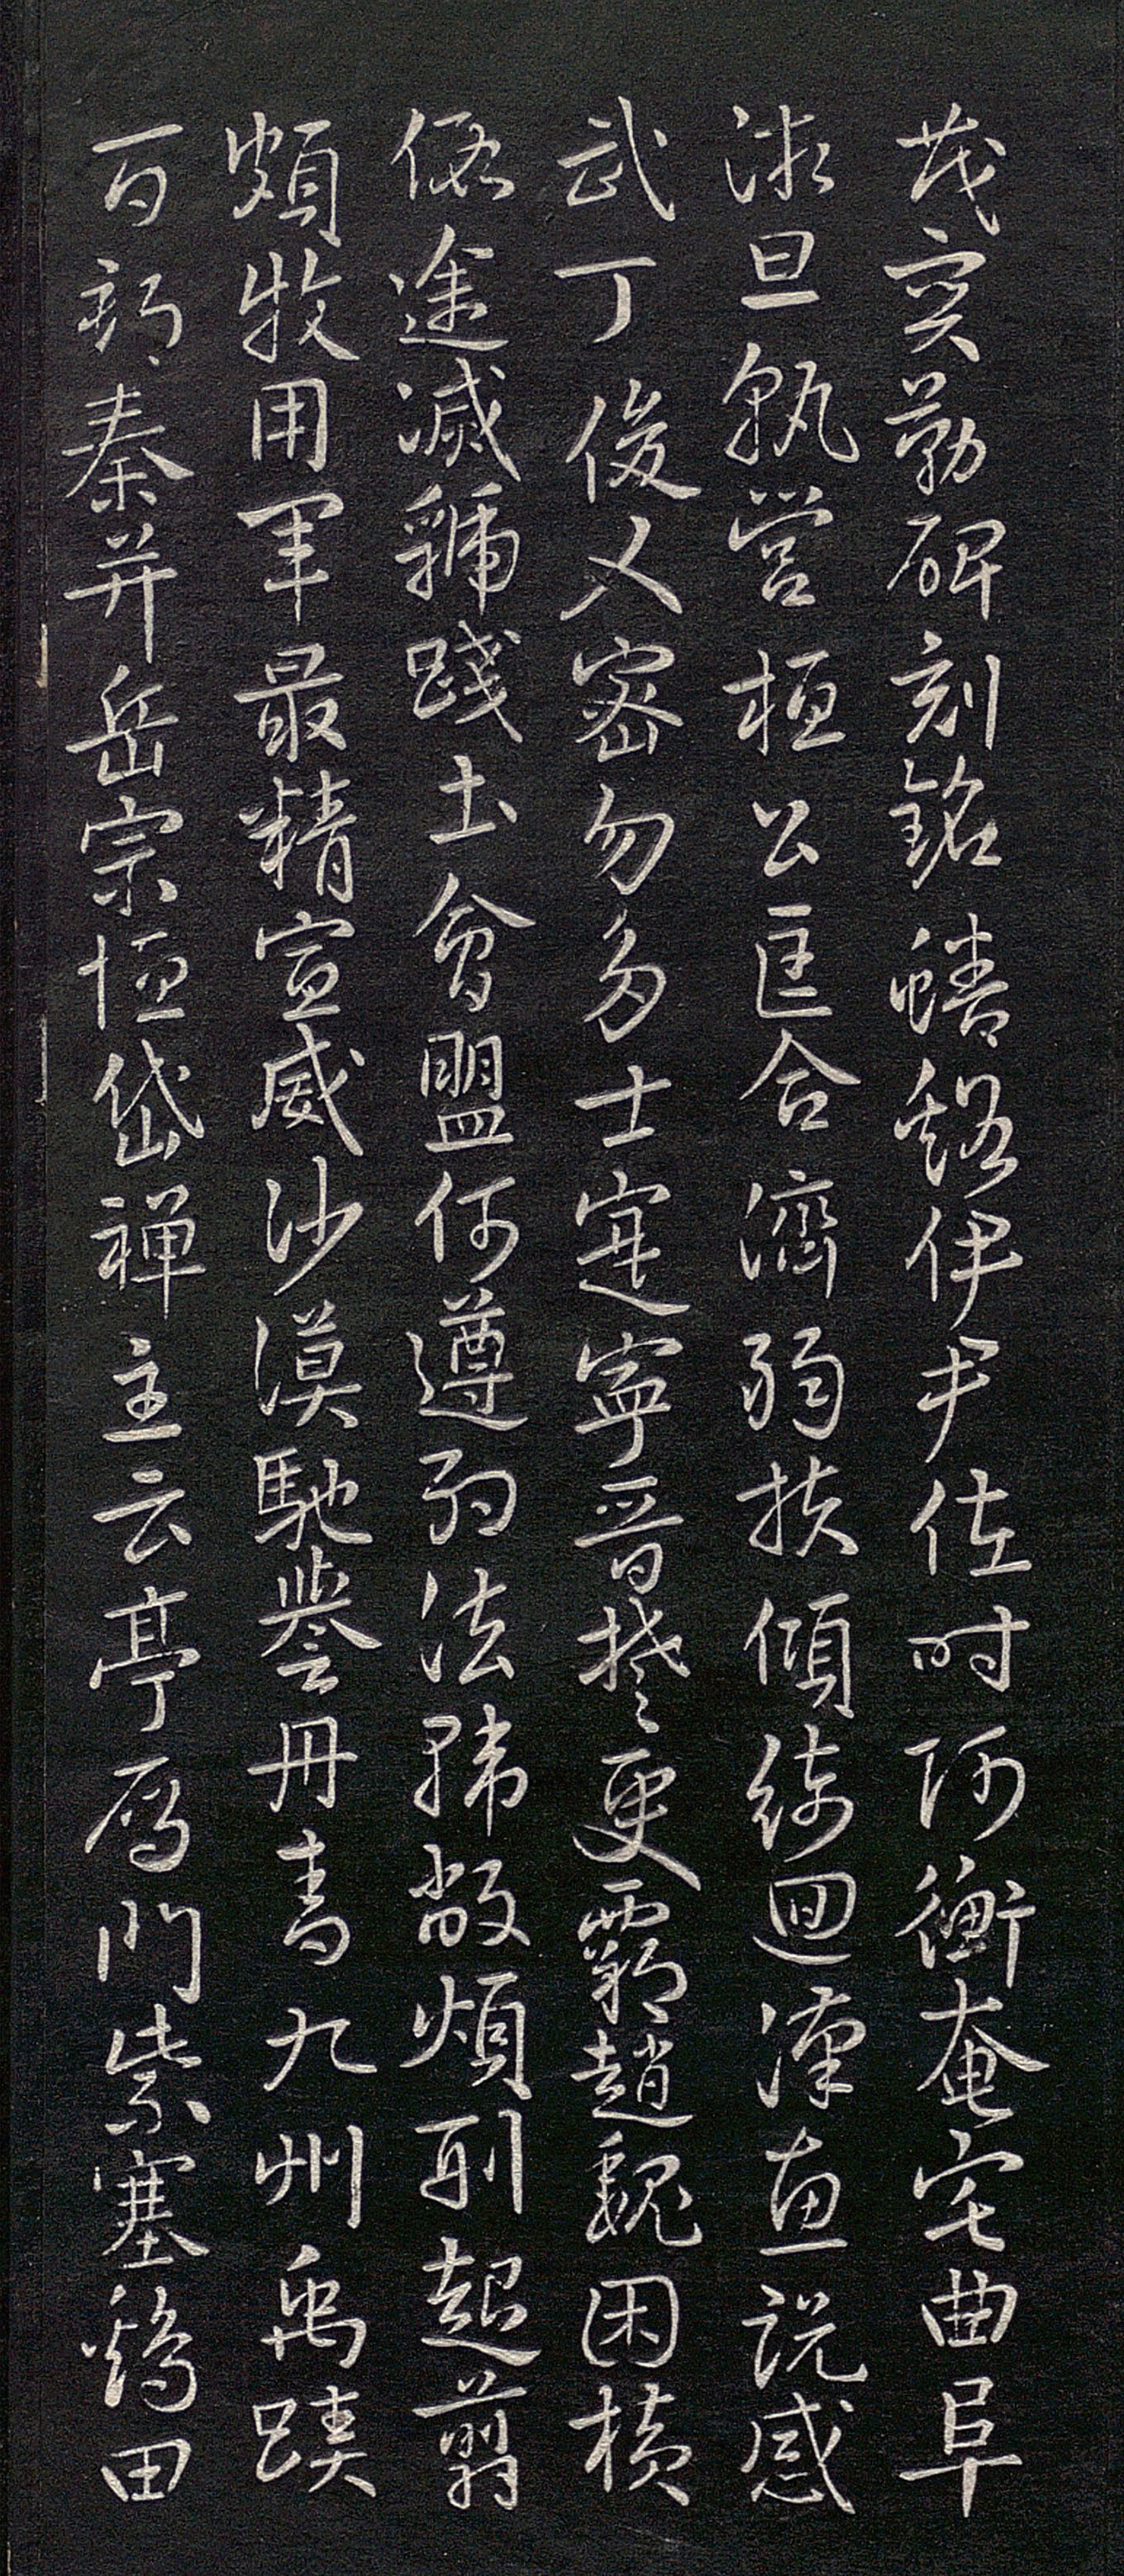 茂實勒碑刻銘磻谿伊尹佐時阿衡奄宅曲阜
微旦孰營桓公匡合濟弱扶傾綺回漢惠說感
武丁俊乂密勿多士寔寧晉楚更霸趙魏困橫
假途滅虢踐土會盟何遵約法韓弊煩刑起翦
頗牧用軍最精宣威沙漠馳譽丹青九州禹蹟
百郡秦并岳宗恒岱禪主云亭鴈門紫塞鷄田